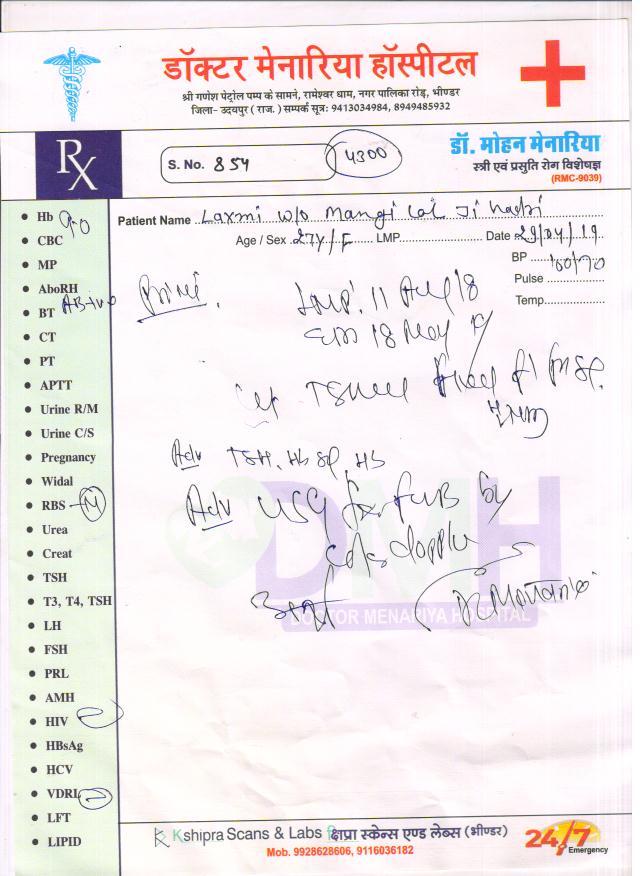 डॉक्टर मेनारिया हॉस्पीटल
श्री गणेश पेट्रोल पम्प के सामने, रामेश्वर धाम, नगर पालिका रोड़, भीण्डर
जिला- उदयपुर ( राज. ) सम्पर्क सूत्र: 9413034984, 8949485932
Rx
S. No. 854
4300
डॉ. मोहन मेनारिया
स्त्री एवं प्रसुति रोग विशेषज्ञ
(RMC-9039)
Patient Name Laxmi w/o Mangi Lal Ji
Age / Sex 27Y/F LMP Date 29/04/19
BP 100/70
Pulse
Temp.
Hb 9.0
CBC
MP
AboRH
BT AB+ve
CT
PT
APTT
Urine R/M
Urine C/S
Pregnancy
Widal
RBS N
Urea
Creat
TSH
T3, T4, TSH
LH
FSH
PRL
AMH
HIV
HBsAg
HCV
VDRL
LFT
LIPID
Primi.
LMP. 11 Aug 18
EDD 18 May 19
Adv TSH. Hb
Adv USG for FWB by
doppler
DMH
DOCTOR MENARIYA HOSPITAL
Kshipra Scans & Labs क्षिप्रा स्केन्स एण्ड लेब्स (भीण्डर)
Mob. 9928628606, 9116036182
24/7
Emergency